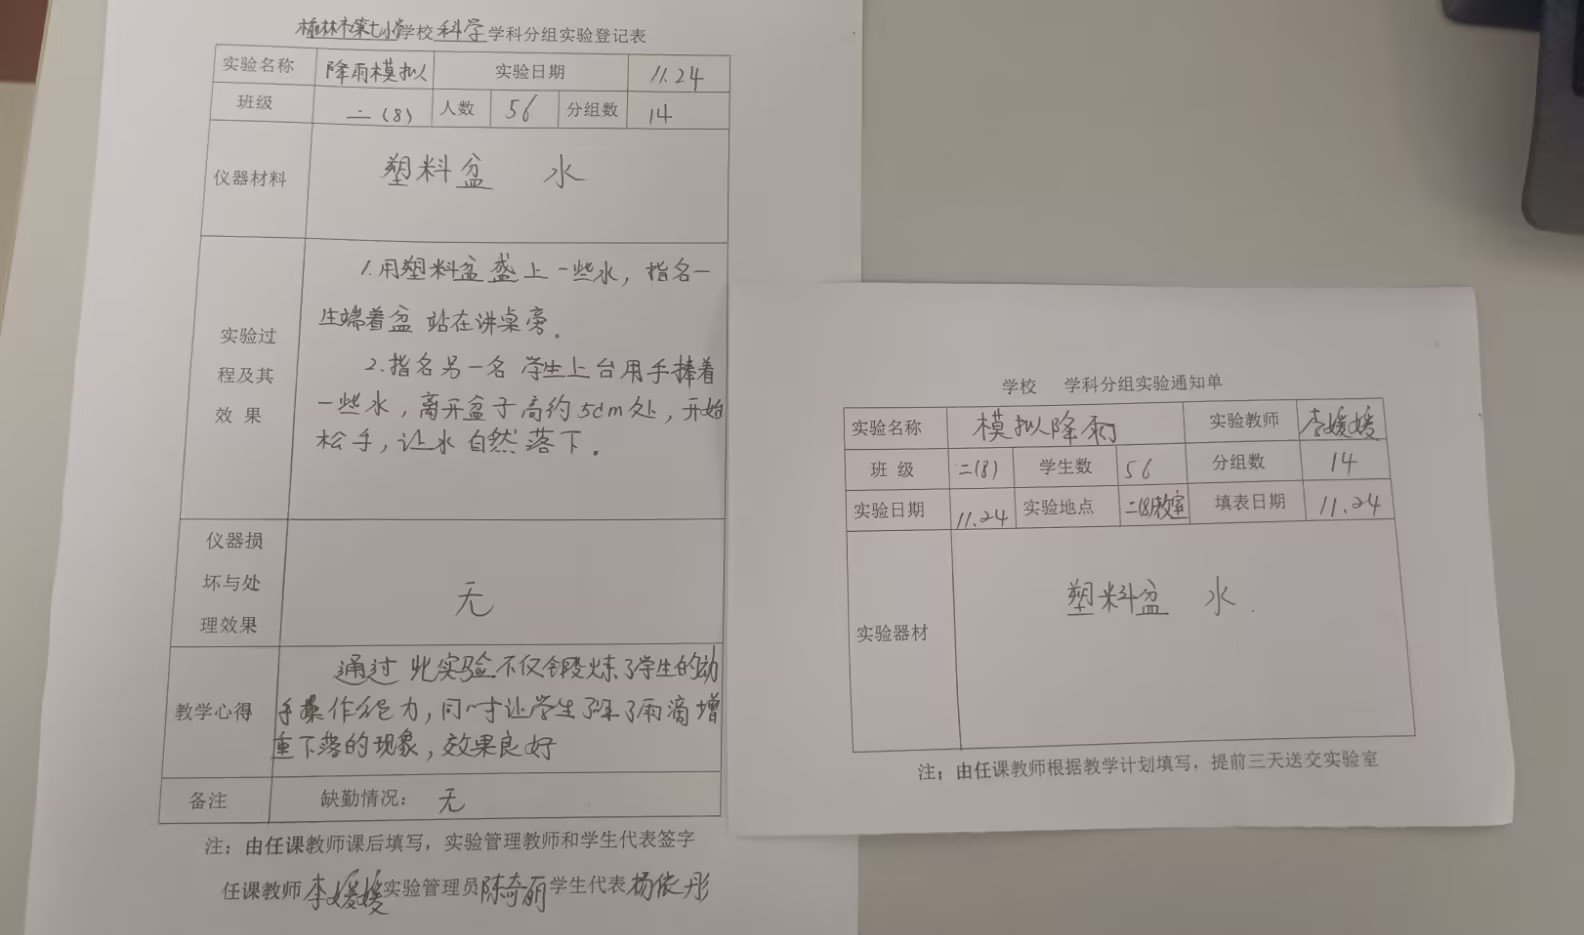 榆林市第七小学学校科学学科分组实验登记表
实验名称 降雨模拟 实验日期 11.24
班级 二(8) 人数 56 分组数 14
仪器材料 塑料盆 水
实验过程及其效果
1.用塑料盆盛上一些水，指名一
生端着盆站在讲桌旁。
2.指名另一名学生上台用手捧着
一些水，离开盆子高约5cm处，开始
松手，让水自然落下。
仪器损坏与处理效果 无
教学心得
通过此实验不仅锻炼了学生的动
手操作能力，同时让学生了解了雨滴增
重下落的现象，效果良好
备注 缺勤情况： 无
注：由任课教师课后填写，实验管理教师和学生代表签字
任课教师李媛媛实验管理员陈奇丽学生代表杨依彤
学校 学科分组实验通知单
实验名称 模拟降雨 实验教师 李媛媛
班 级 二(8) 学生数 56 分组数 14
实验日期 11.24 实验地点 二(8)教室 填表日期 11.24
实验器材 塑料盆 水.
注：由任课教师根据教学计划填写，提前三天送交实验室